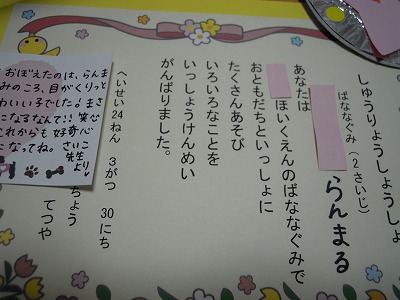 しゅうりょうしょうしょ
ばななぐみ（2さいじ）
らんまる
あなたは
ほいくえんのばななぐみで
おともだちといっしょに
たくさんあそび
いろいろなことを
いっしょうけんめい
がんばりました。
へいせい24ねん 3がつ 30にち
ちょう
てつや
おぼえたのは、らんま
みのころ、目がくりっと
わいい子でした！まさ
になるなんて!!実心
これからも好奇心
になってね。さいこ
先生
より